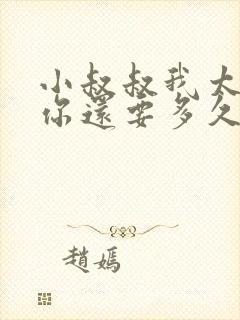 小叔叔我太
你還要多久
趙嫣